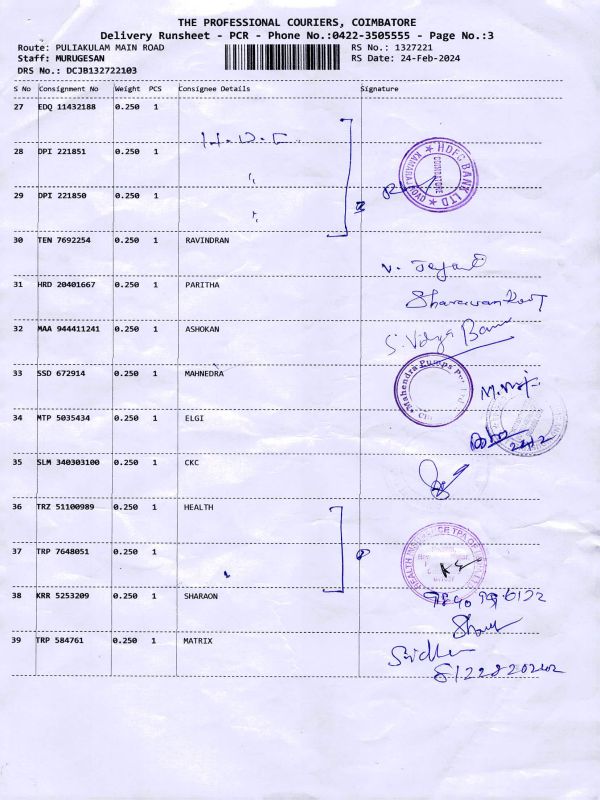 THE PROFESSIONAL COURIERS, COIMBATORE
Delivery Runsheet - PCR - Phone No.:0422-3505555 - Page No.:3
Route: PULIAKULAM MAIN ROAD RS No.: 1327221
Staff: MURUGESAN RS Date: 24-Feb-2024
DRS No.: DCJB132722103
S No Consignment No Weight PCS Consignee Details Signature
27 EDQ 11432188 0.250 1
28 DPI 221851 0.250 1
HDFC BANK LTD
29 DPI 221850 0.250 1
30 TEN 7692254 0.250 1 RAVINDRAN
31 HRD 20401667 0.250 1 PARITHA
32 MAA 944411241 0.250 1 ASHOKAN
S. Vidya
33 SSD 672914 0.250 1 MAHNEDRA
Mahendra Pumps
34 MTP 5035434 0.250 1 ELGI
35 SLM 340303100 0.250 1 CKC
36 TRZ 51100989 0.250 1 HEALTH
37 TRP 7648051 0.250 1
38 KRR 5253209 0.250 1 SHARAON
39 TRP 584761 0.250 1 MATRIX